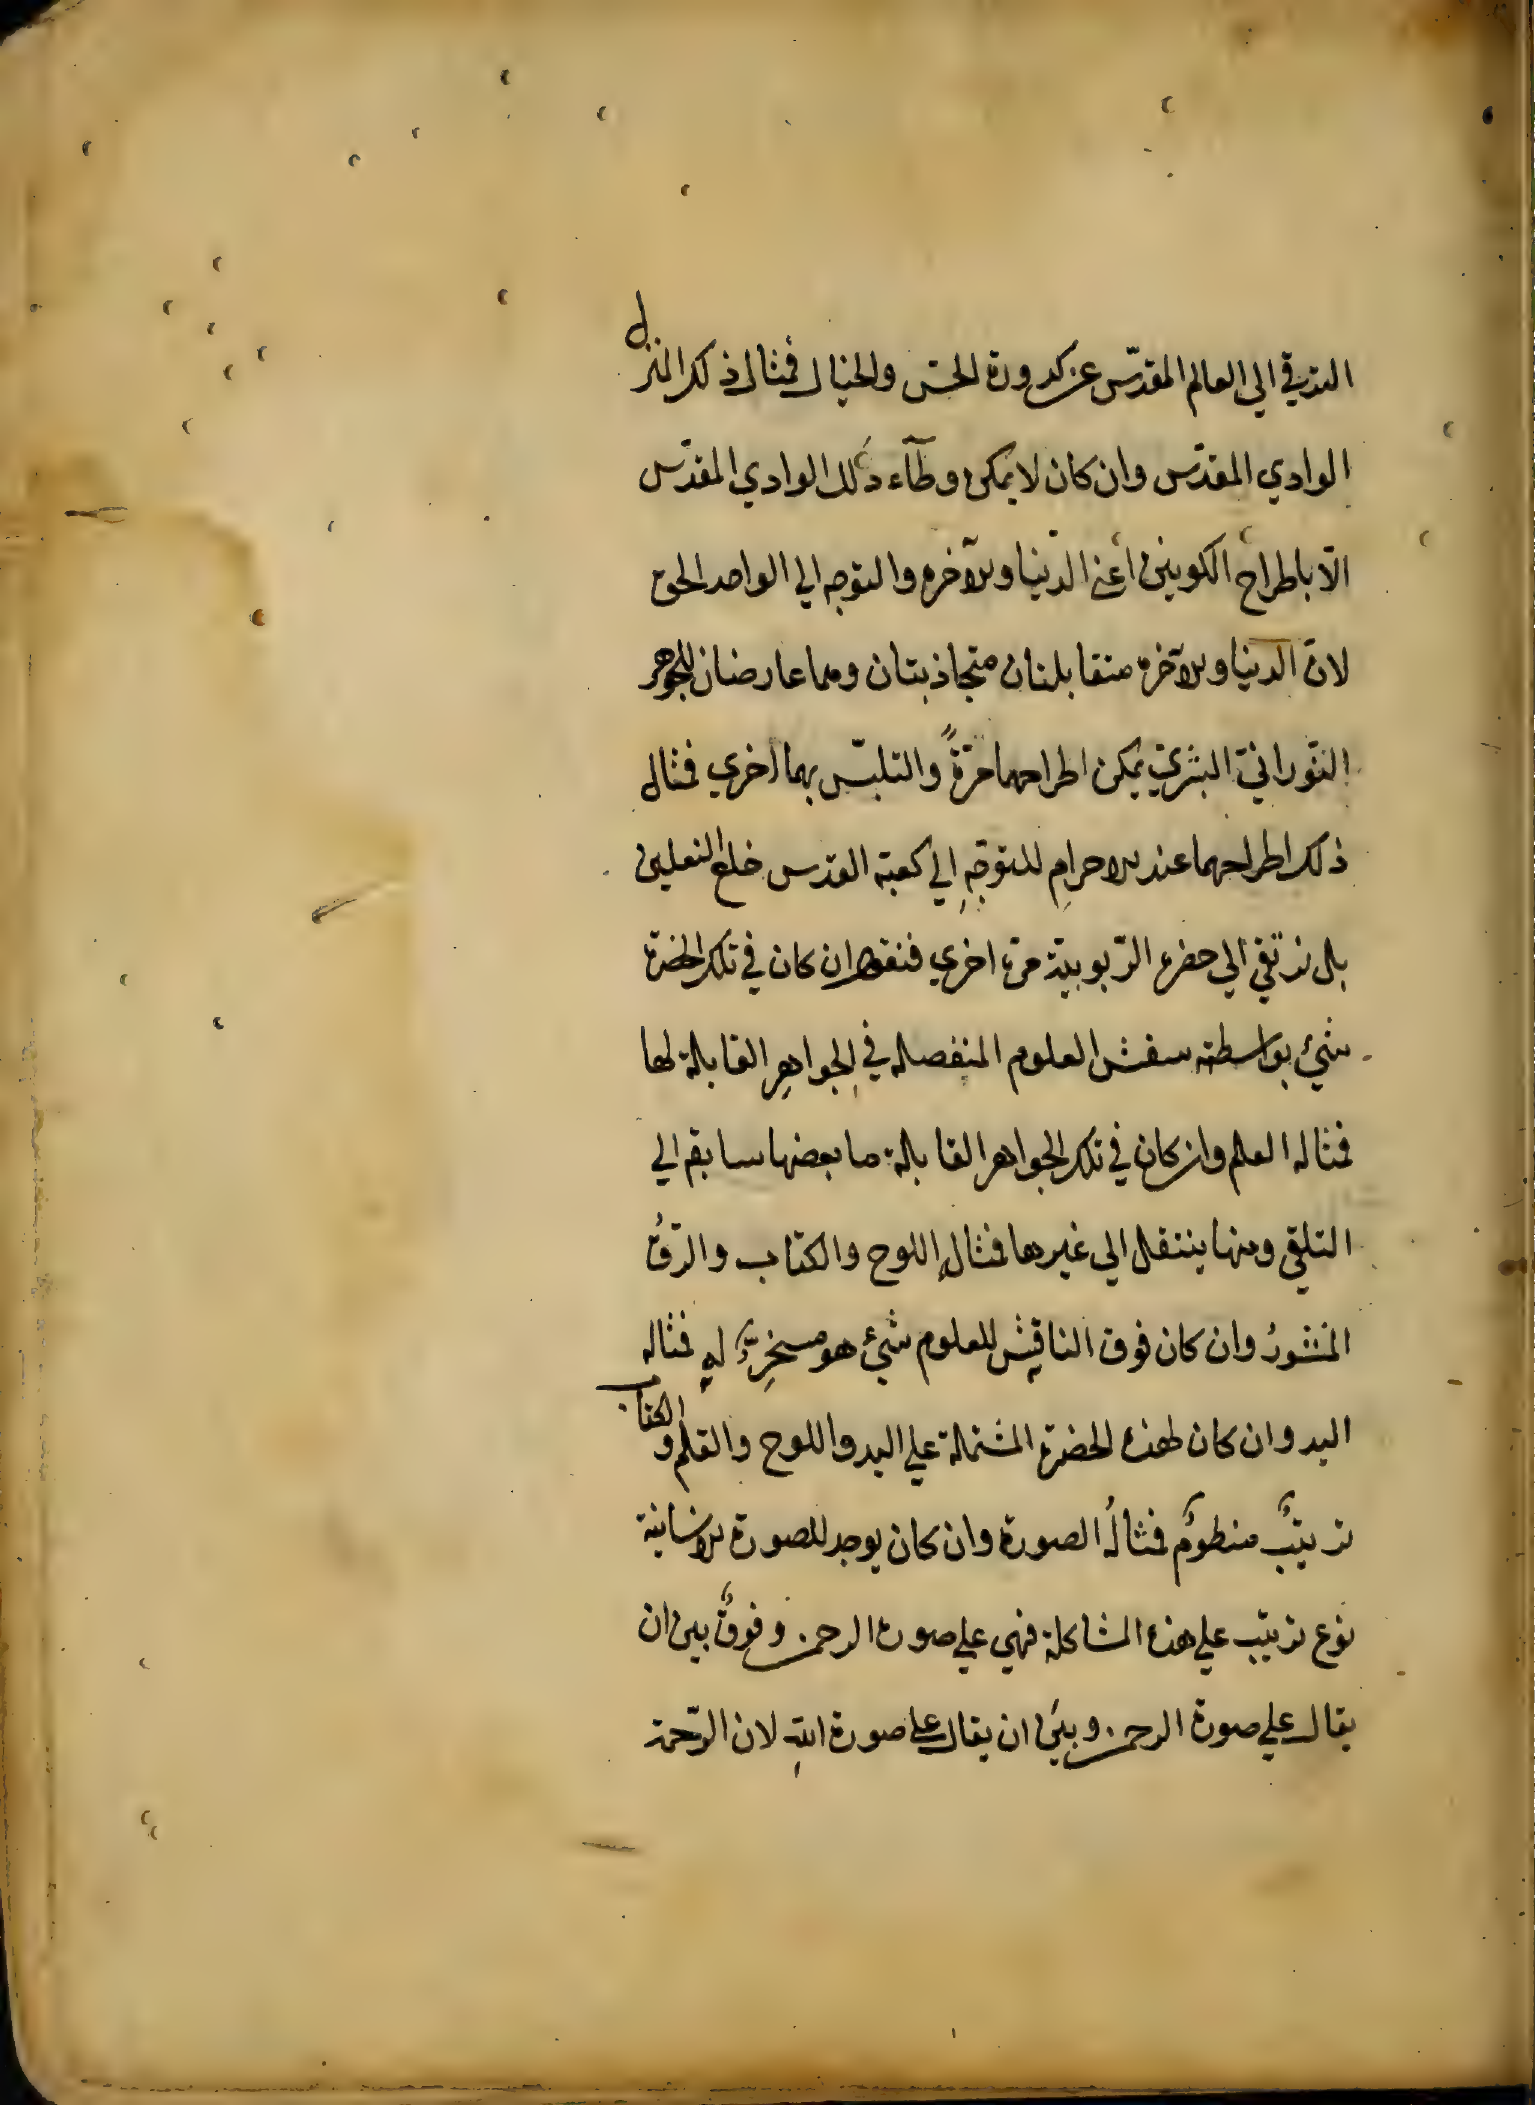 الترقي الى العالم المقدّس عن كدورة الحسّ والخيال فمثال ذلك المنزل
الوادي المقدّس وان كان لا يمكن وطآء ذلك الوادي المقدّس
الّا باطراح الكونين اعني الدّنيا والآخره والتوجه الي الواحد الحق
لانّ الدنيا والآخره متقابلتان متجاذبتان وهما عارضان للجوهر
النّورانيّ البشريّ يمكن اطراحهما مرّةً والتلبّس بهما اخري فمثال
ذلك اطراحهما عند الاحرامِ للتوجّهِ إلي كعبة القدس خلع النعلين
بل نرتقي الي حضرة الرّبوبيّة مرة اخري فنقول ان كان في تلك الحضرة
شيئ بواسطته سقش العلوم المنفصله في الجواهرِ القابلة لها
فمثاله العلم وان كان في تلك الجواهر القابلة ما بعضها سابقه الي
التلقي ومنها ينتقل الي غيرها فمثالها اللوح والكتاب والرّقُ
المنشورُ وان كان فوق الناقِشِ للعلوم شيئ هو مسخرِ لهِ فمثاله
اليد وان كان لهذه الحضرة المشتملة علي اليد واللوح والقلم والكتاب
ترتيبٌ منظومٌ فمثالُه الصورة وان كان يوجد للصورة الانسانية
نوع ترتيب علي هذه المشاكلة فهي علي صورة الرحمن وفرقٌ بين ان
يقال علي صورة الرحمن وبين ان يقال علي صورة اللهِ لان الرّحمة